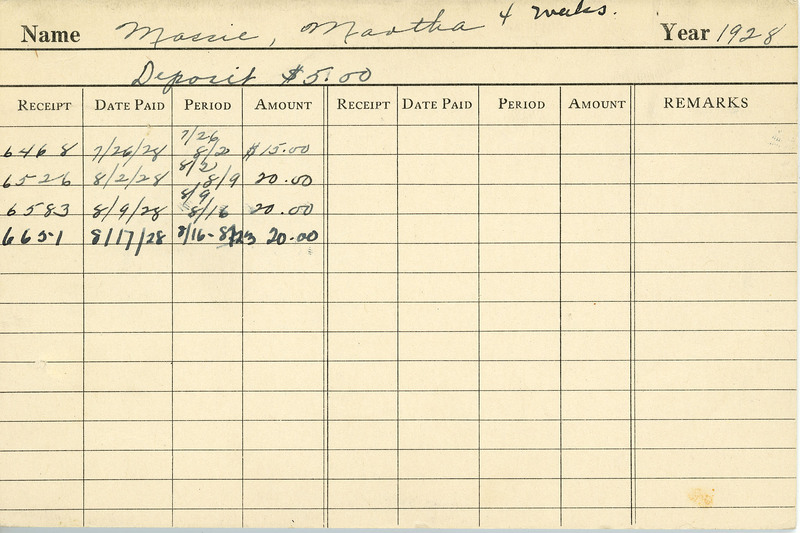 Name Massie, Martha 4 weeks. Year 1928
Deposit $5.00
RECEIPT DATE PAID PERIOD AMOUNT RECEIPT DATE PAID PERIOD AMOUNT REMARKS
6468 7/26/28 7/26 8/2 $15.00
6526 8/2/28 8/2 8/9 20.00
6583 8/9/28 8/9 8/16 20.00
6651 8/17/28 8/16-8/23 20.00